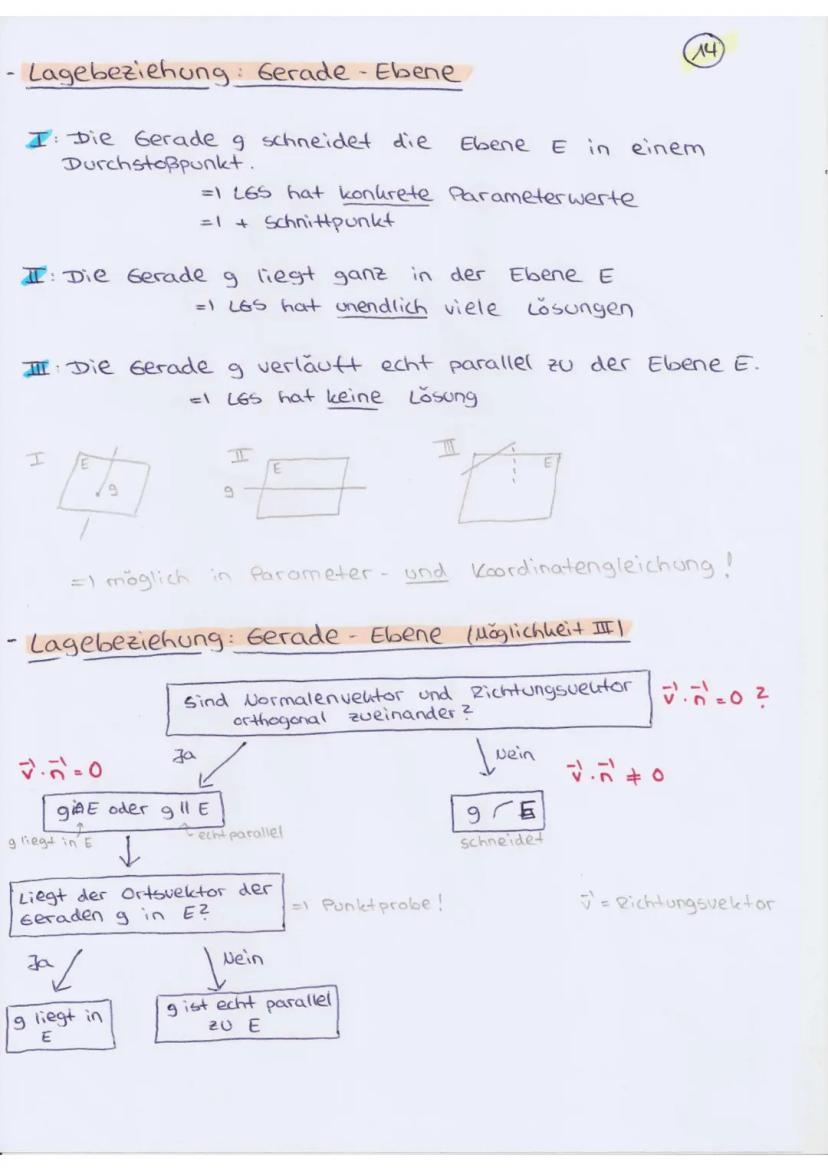 14
- Lagebeziehung: Gerade - Ebene
I: Die Gerade g schneidet die Ebene E in einem
Durchstoßpunkt.
=> LGS hat konkrete Parameterwerte
=> + Schnittpunkt
II: Die Gerade g liegt ganz in der Ebene E
=> LGS hat unendlich viele Lösungen
III: Die Gerade g verläuft echt parallel zu der Ebene E.
=> LGS hat keine Lösung
I E g
II E g
III E
=> möglich in Parameter- und Koordinatengleichung!
- Lagebeziehung: Gerade - Ebene (Möglichkeit III)
Sind Normalenvektor und Richtungsvektor
orthogonal zueinander?
v⃗ · n⃗ = 0 ?
Ja
Nein
v⃗ · n⃗ = 0
v⃗ · n⃗ ≠ 0
E oder g || E
g E
g liegt in E
echt parallel
schneidet
Liegt der Ortsvektor der
Geraden g in E?
=> Punktprobe!
v⃗ = Richtungsvektor
Ja
Nein
g liegt in
E
g ist echt parallel
zu E